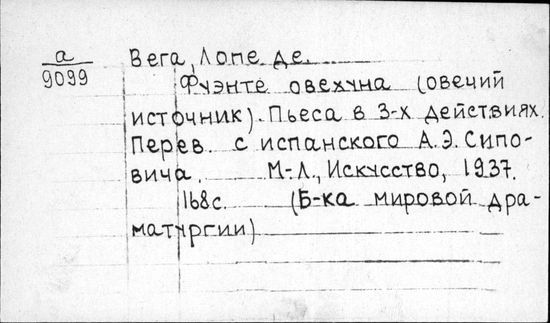 а
9099
Вега, Лопе де.
Фуэнте овехуна (овечий
источник). Пьеса в 3-х действиях.
Перев. с испанского А.Э.Сипо-
вича. М-Л., Искусство, 1937.
168с. (Б-ка мировой дра-
матургии)